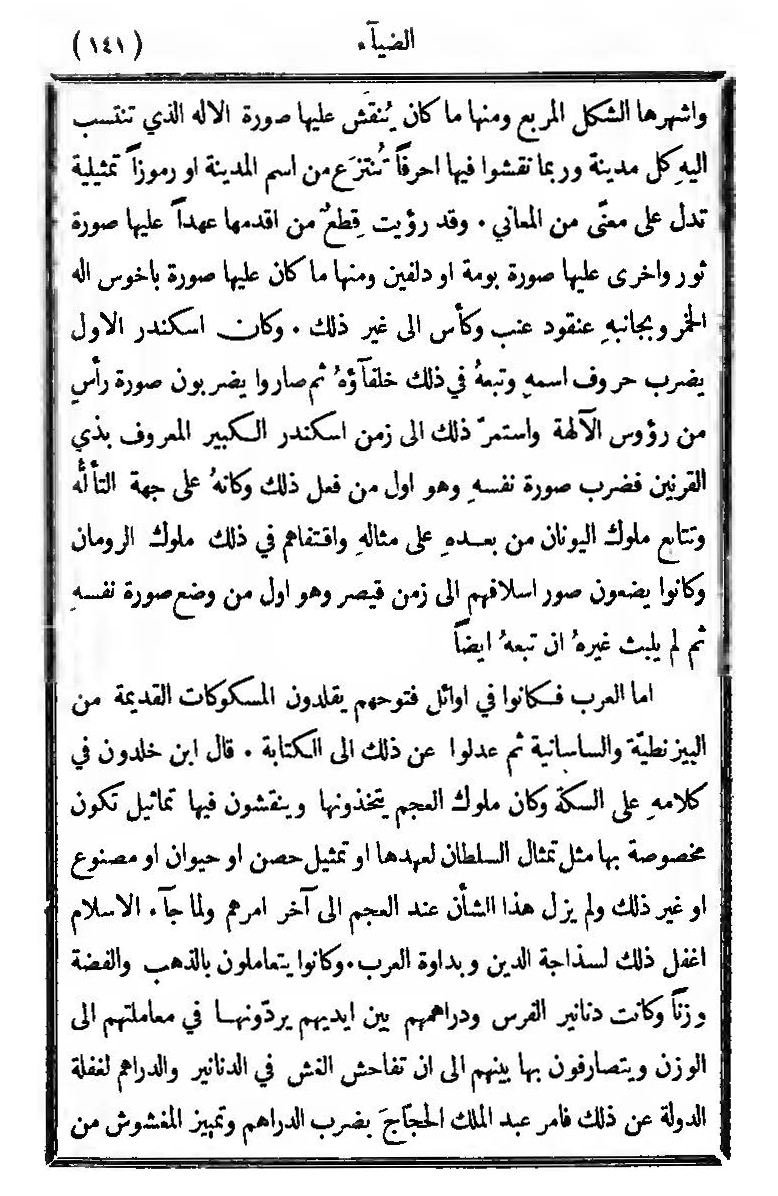 الضيآء
(١٤١)
واشهرها الشكل المربع ومنها ما كان يُنقَش عليها صورة الاله الذي تنتسب
اليهِ كل مدينة وربما نقشوا فيها احرفاً تُنتزَع من اسم المدينة او رموزاً تمثيلية
تدل على معنًى من المعاني ٠ وقد رؤيت قِطَعٌ من اقدمها عهداً عليها صورة
ثور واخرى عليها صورة بومة او دلفين ومنها ما كان عليها صورة باخوس اله
الخمر وبجانبهِ عنقود عنب وكأس الى غير ذلك ٠ وكان اسكندر الاول
يضرب حروف اسمهِ وتبعهُ في ذلك خلفآؤهُ ثم صاروا يضربون صورة رأسٍ
من رؤوس الآلهة واستمرّ ذلك الى زمن اسكندر الكبير المعروف بذي
القرنين فضرب صورة نفسهِ وهو اول من فعل ذلك وكانهُ على جهة التألُّه
وتتابع ملوك اليونان من بعدهِ على مثالهِ واقتفاهم في ذلك ملوك الرومان
وكانوا يضعون صور اسلافهم الى زمن قيصر وهو اول من وضع صورة نفسهِ
ثم لم يلبث غيرهُ ان تبعهُ ايضاً
اما العرب فكانوا في اوائل فتوحهم يقلدون المسكوكات القديمة من
البيزنطيَّة والساسانية ثم عدلوا عن ذلك الى الكتابة ٠ قال ابن خلدون في
كلامهِ على السكَّة وكان ملوك العجم يتخذونها وينقشون فيها تماثيل تكون
مخصوصة بها مثل تمثال السلطان لعهدها او تمثيل حصن او حيوان او مصنوع
او غير ذلك ولم يزل هذا الشأن عند العجم الى آخر امرهم ولما جآء الاسلام
اغفل ذلك لسذاجة الدين وبداوة العرب ٠ وكانوا يتعاملون بالذهب والفضة
وزناً وكانت دنانير الفرس ودراهمهم بين ايديهم يردّونها في معاملتهم الى
الوزن ويتصارفون بها بينهم الى ان تفاحش الغش في الدنانير والدراهم لغفلة
الدولة عن ذلك فامر عبد الملك الحجّاجَ بضرب الدراهم وتمييز المغشوش من